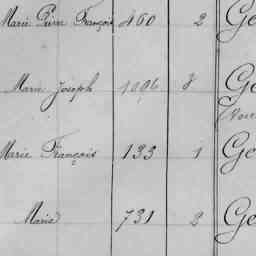 Marie Pierre François 460 2 Ge
Marie Joseph 1096 8 Ge
Marie François 133 1 Ge
Marie 731 2 Ge